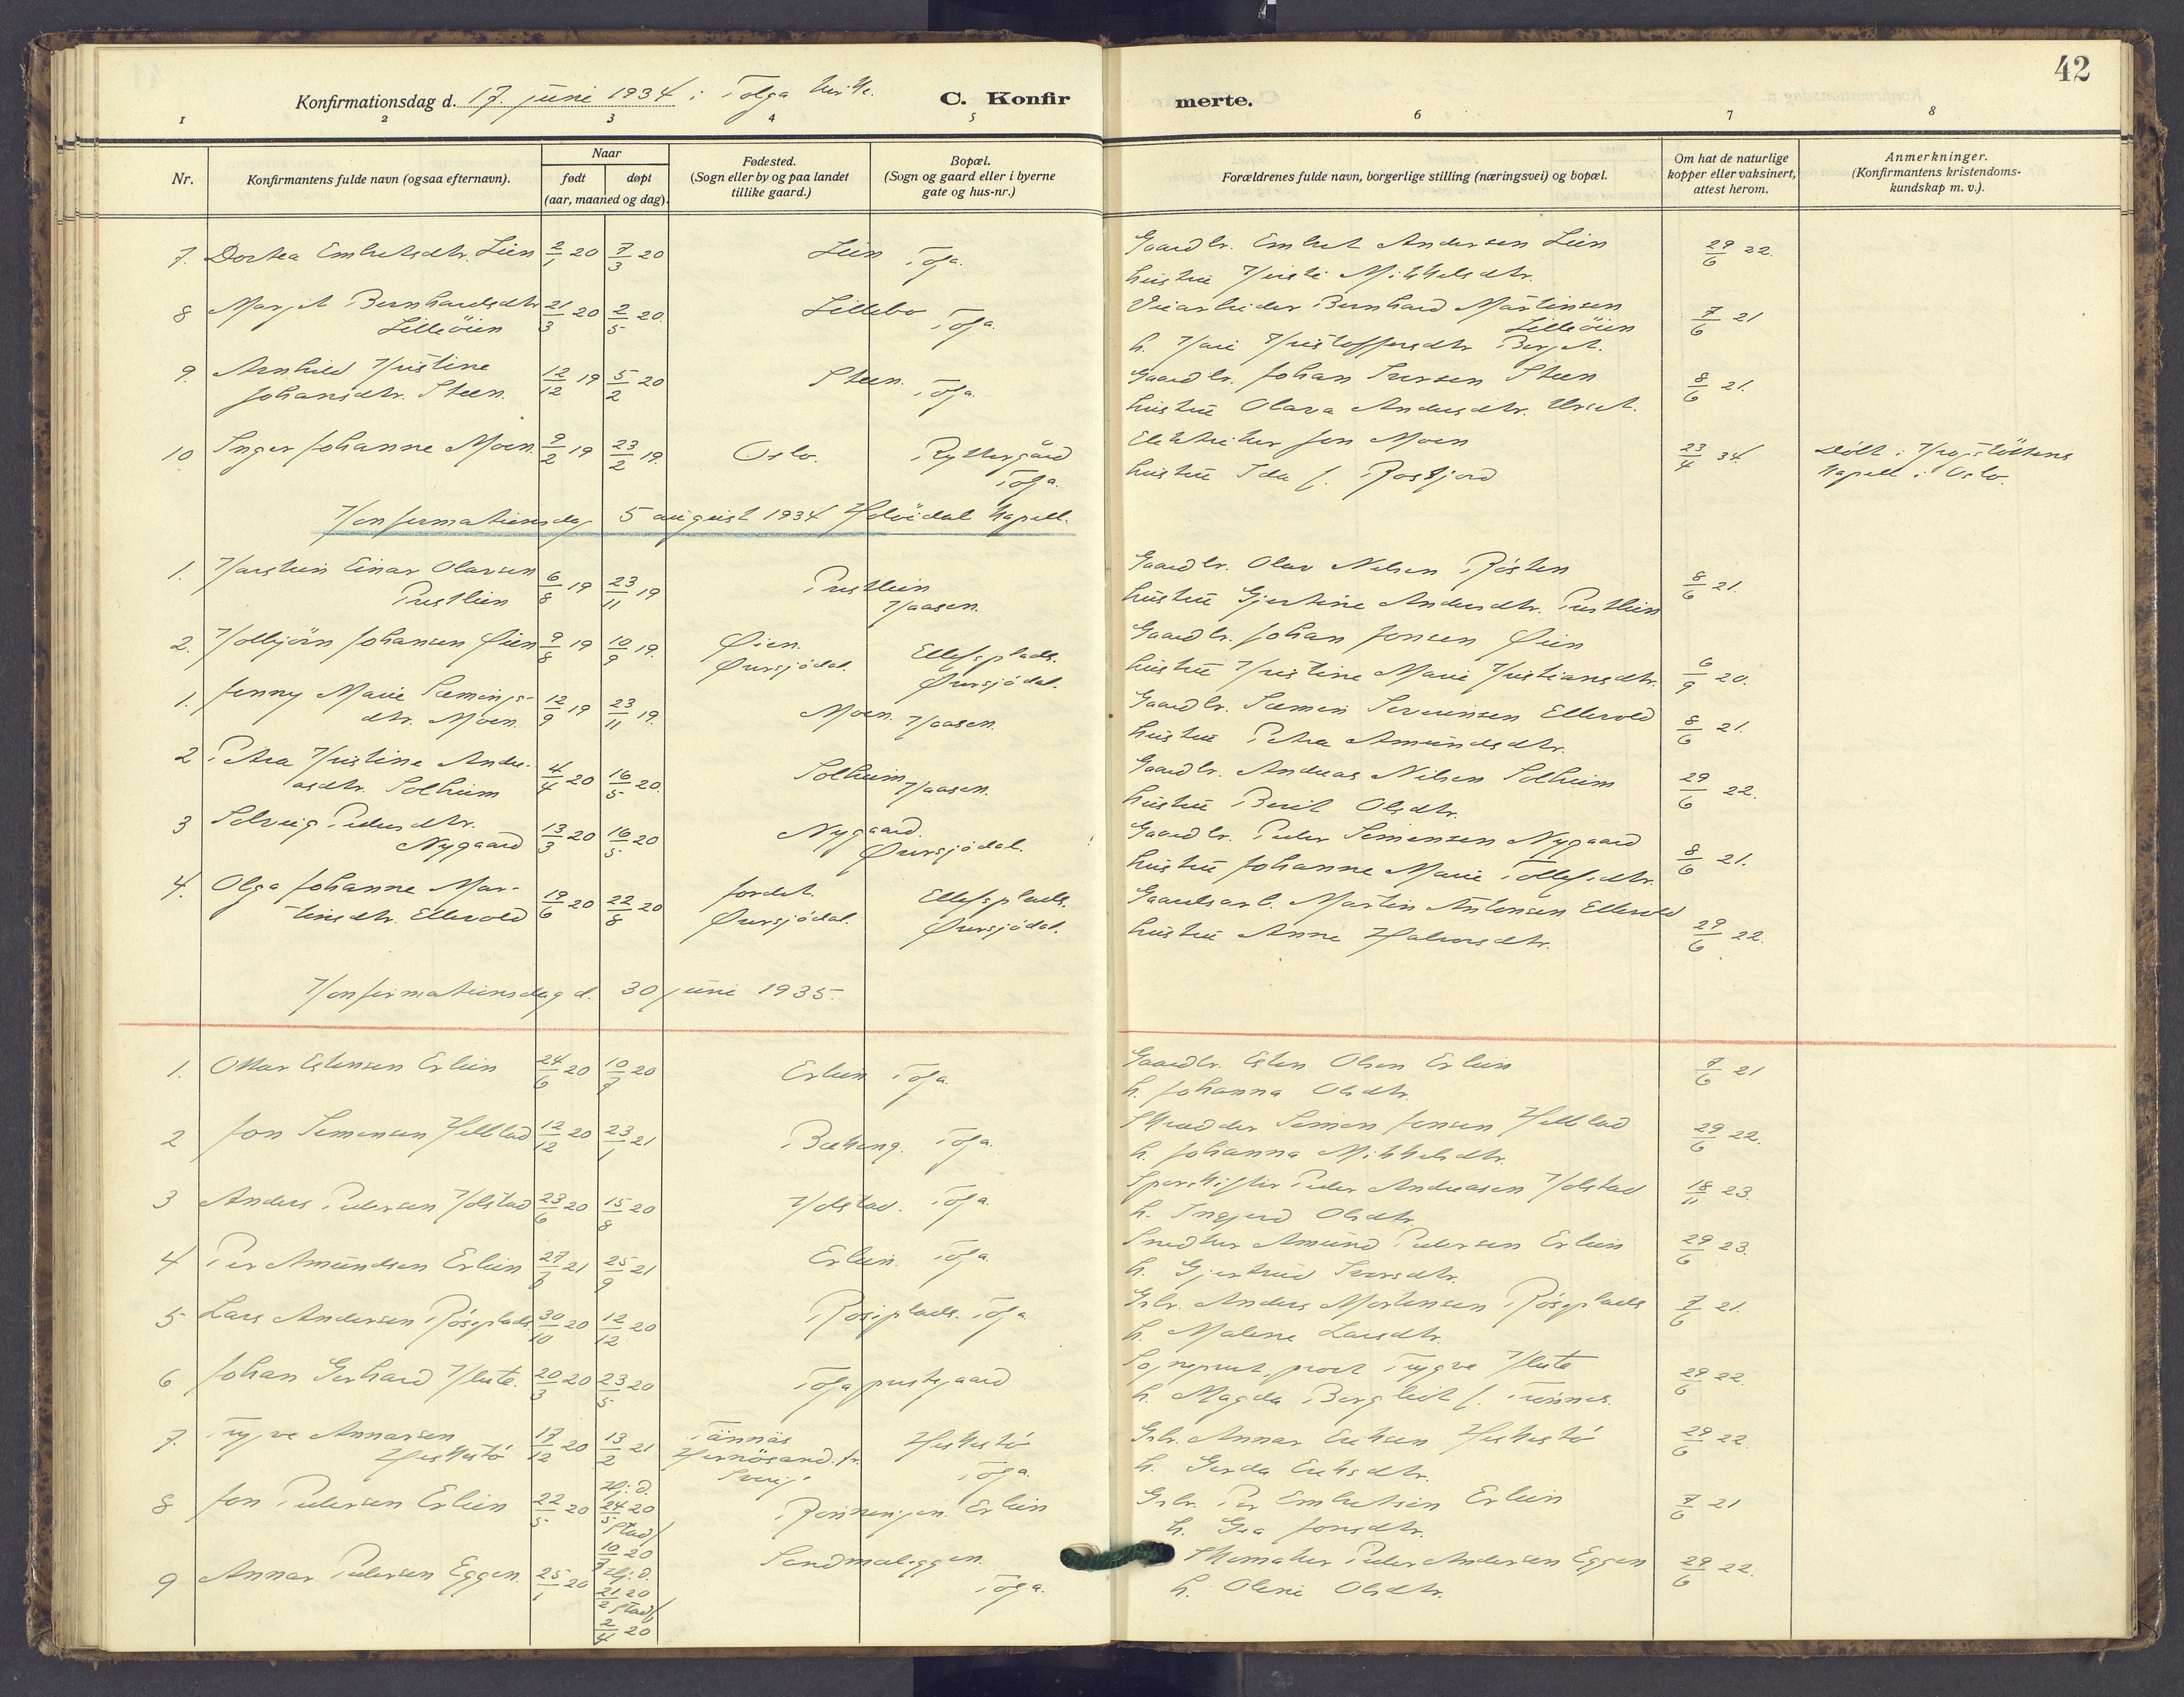 42
Konfirmationsdag d. 17. juni 1934 i Tolga kirke.
C. Konfirmerte.
1 2 3 4 5 6 7 8
Nr.
Konfirmantens fulde navn (ogsaa efternavn).
Naar
født døpt
(aar, maaned og dag).
Fødested.
(Sogn eller by og paa landet
tillike gaard.)
Bopæl.
(Sogn og gaard eller i byerne
gate og hus-nr.)
Forældrenes fulde navn, borgerlige stilling (næringsvei) og bopæl.
Om hat de naturlige
kopper eller vaksinert,
attest herom.
Anmerkninger.
(Konfirmantens kristendoms-
kundskap m. v.).
7. Dortea Embretsdtr. Lien 2/1 20 7/3 20 Lien Tolga. Gaardbr. Embret Andersen Lien 29/6 22.
hustru Kirsti Mikkelsdtr.
8 Marjit Bernhardsdtr 21/3 20 2/5 20. Lillebo Tolga. Veiarbeider Bernhard Martinsen 7/6 21
Lilleöien Lilleöien
h. Kari Kristoffersdtr Berget.
9. Arnhild Kristine 12/12 19 5/2 20 Steen. Tolga. Gaardbr. Johan Iversen Steen 8/6 21.
Johansdtr. Steen. hustru Olava Andersdtr. Urset.
10 Inger Johanne Moen. 9/2 19 23/2 19. Oslo. Ryttergård Elektriker Jon Moen 23/4 34. Döbt i Krogstöttens
Tolga. hustru Ida f. Rostjord kapell i Oslo.
Konfirmationsdag 5 august 1934 Holöidal kapell.
1. Karstein Einar Olavsen 6/8 19 23/11 19 Prestlien Gaardbr. Olav Nilsen Røsten 8/6 21.
Prestlien Kaasen. hustru Gjertine Andersdtr. Prestlien
2. Kolbjörn Johansen Øien 9/8 19 10/9 19. Øien. Ellefsplads. Gaardbr. Johan Jonsen Øien 6/9 20.
Øversjödal. Øversjödal. hustru Kristine Marie Kristiansdtr.
1. Jenny Marie Sæmings- 12/9 19 23/11 19. Moen. Kaasen. Gaardbr. Sæmin Severinsen Ellevold 8/6 21.
dtr. Moen. hustru Petra Amundsdtr.
2 Petra Kristine Andre- 4/4 20 16/5 20. Solheim Kaasen. Gaardbr. Andreas Nilsen Solheim 29/6 22.
asdtr. Solheim hustru Berit Olsdtr.
3 Solveig Pedersdtr. 13/3 20 16/5 20 Nygaard. Gaardbr. Peder Simensen Nygaard 8/6 21.
Nygaard Øversjödal. hustru Johanne Marie Tollefsdtr.
4. Olga Johanne Mar- 19/6 20 22/8 20 Jordet. Ellefsplads. Gaardsarb. Martin Antonsen Ellevold 29/6 22.
tinsdtr. Ellevold Øversjödal. Øversjödal. hustru Anne Halvorsdtr.
Konfirmationsdag d. 30 juni 1935.
1. Ottar Estensen Erlien 24/6 20 10/7 20 Erlien Tolga. Gaardbr. Esten Olsen Erlien 7/6 21
h. Johanna Olsdtr.
2 Jon Simensen Hellstad 12/12 20 23/1 21 Bækeng. Tolga. Skredder Simen Jonsen Hellstad 29/6 22.
h. Johanna Mikkelsdtr.
3 Anders Pedersen Kolstad 23/6 20 15/8 20 Kolstad. Tolga. Sporskifter Peder Andreasen Kolstad 18/11 23.
h. Ingjerd Olsdtr.
4 Per Amundsen Erlien 27/8 21 25/9 21 Erlien. Tolga. Snedker Amund Pedersen Erlien 29/6 23.
h. Gjertrud Iversdtr.
5 Lars Andersen Rösplads. 30/10 20 12/12 20 Rösplads. Tolga. Grbr. Anders Mortensen Rösplads 7/6 21.
h. Malene Larsdtr.
6 Johan Gerhard Klüte. 20/3 20 23/5 20 Tolga prestegaard Sogneprest, prost Trygve Klüte 29/6 22.
h. Magda Bergliot f. Tønnes.
7. Trygve Annarsen 17/12 20 13/2 21 Tännäs Heskestö Grbr. Annar Eriksen Heskestö 29/6 22.
Heskestö Hernösand. Tolga. h. Gerda Eriksdtr.
8 Jon Pedersen Erlien 22/5 20 Hj.d. 24/5 20 stadf. 10/7 20 Rönningen. Erlien Grbr. Per Embretsen Erlien 7/6 21
h. Gea Jonsdtr.
9 Annar Pedersen Eggen. 25/1 20 Hj.d. 21/2 20 stadf. 2/4 20 Sandmaleggen. Tolga. Skomaker Peder Andersen Eggen 29/6 22.
h. Oline Olsdtr.